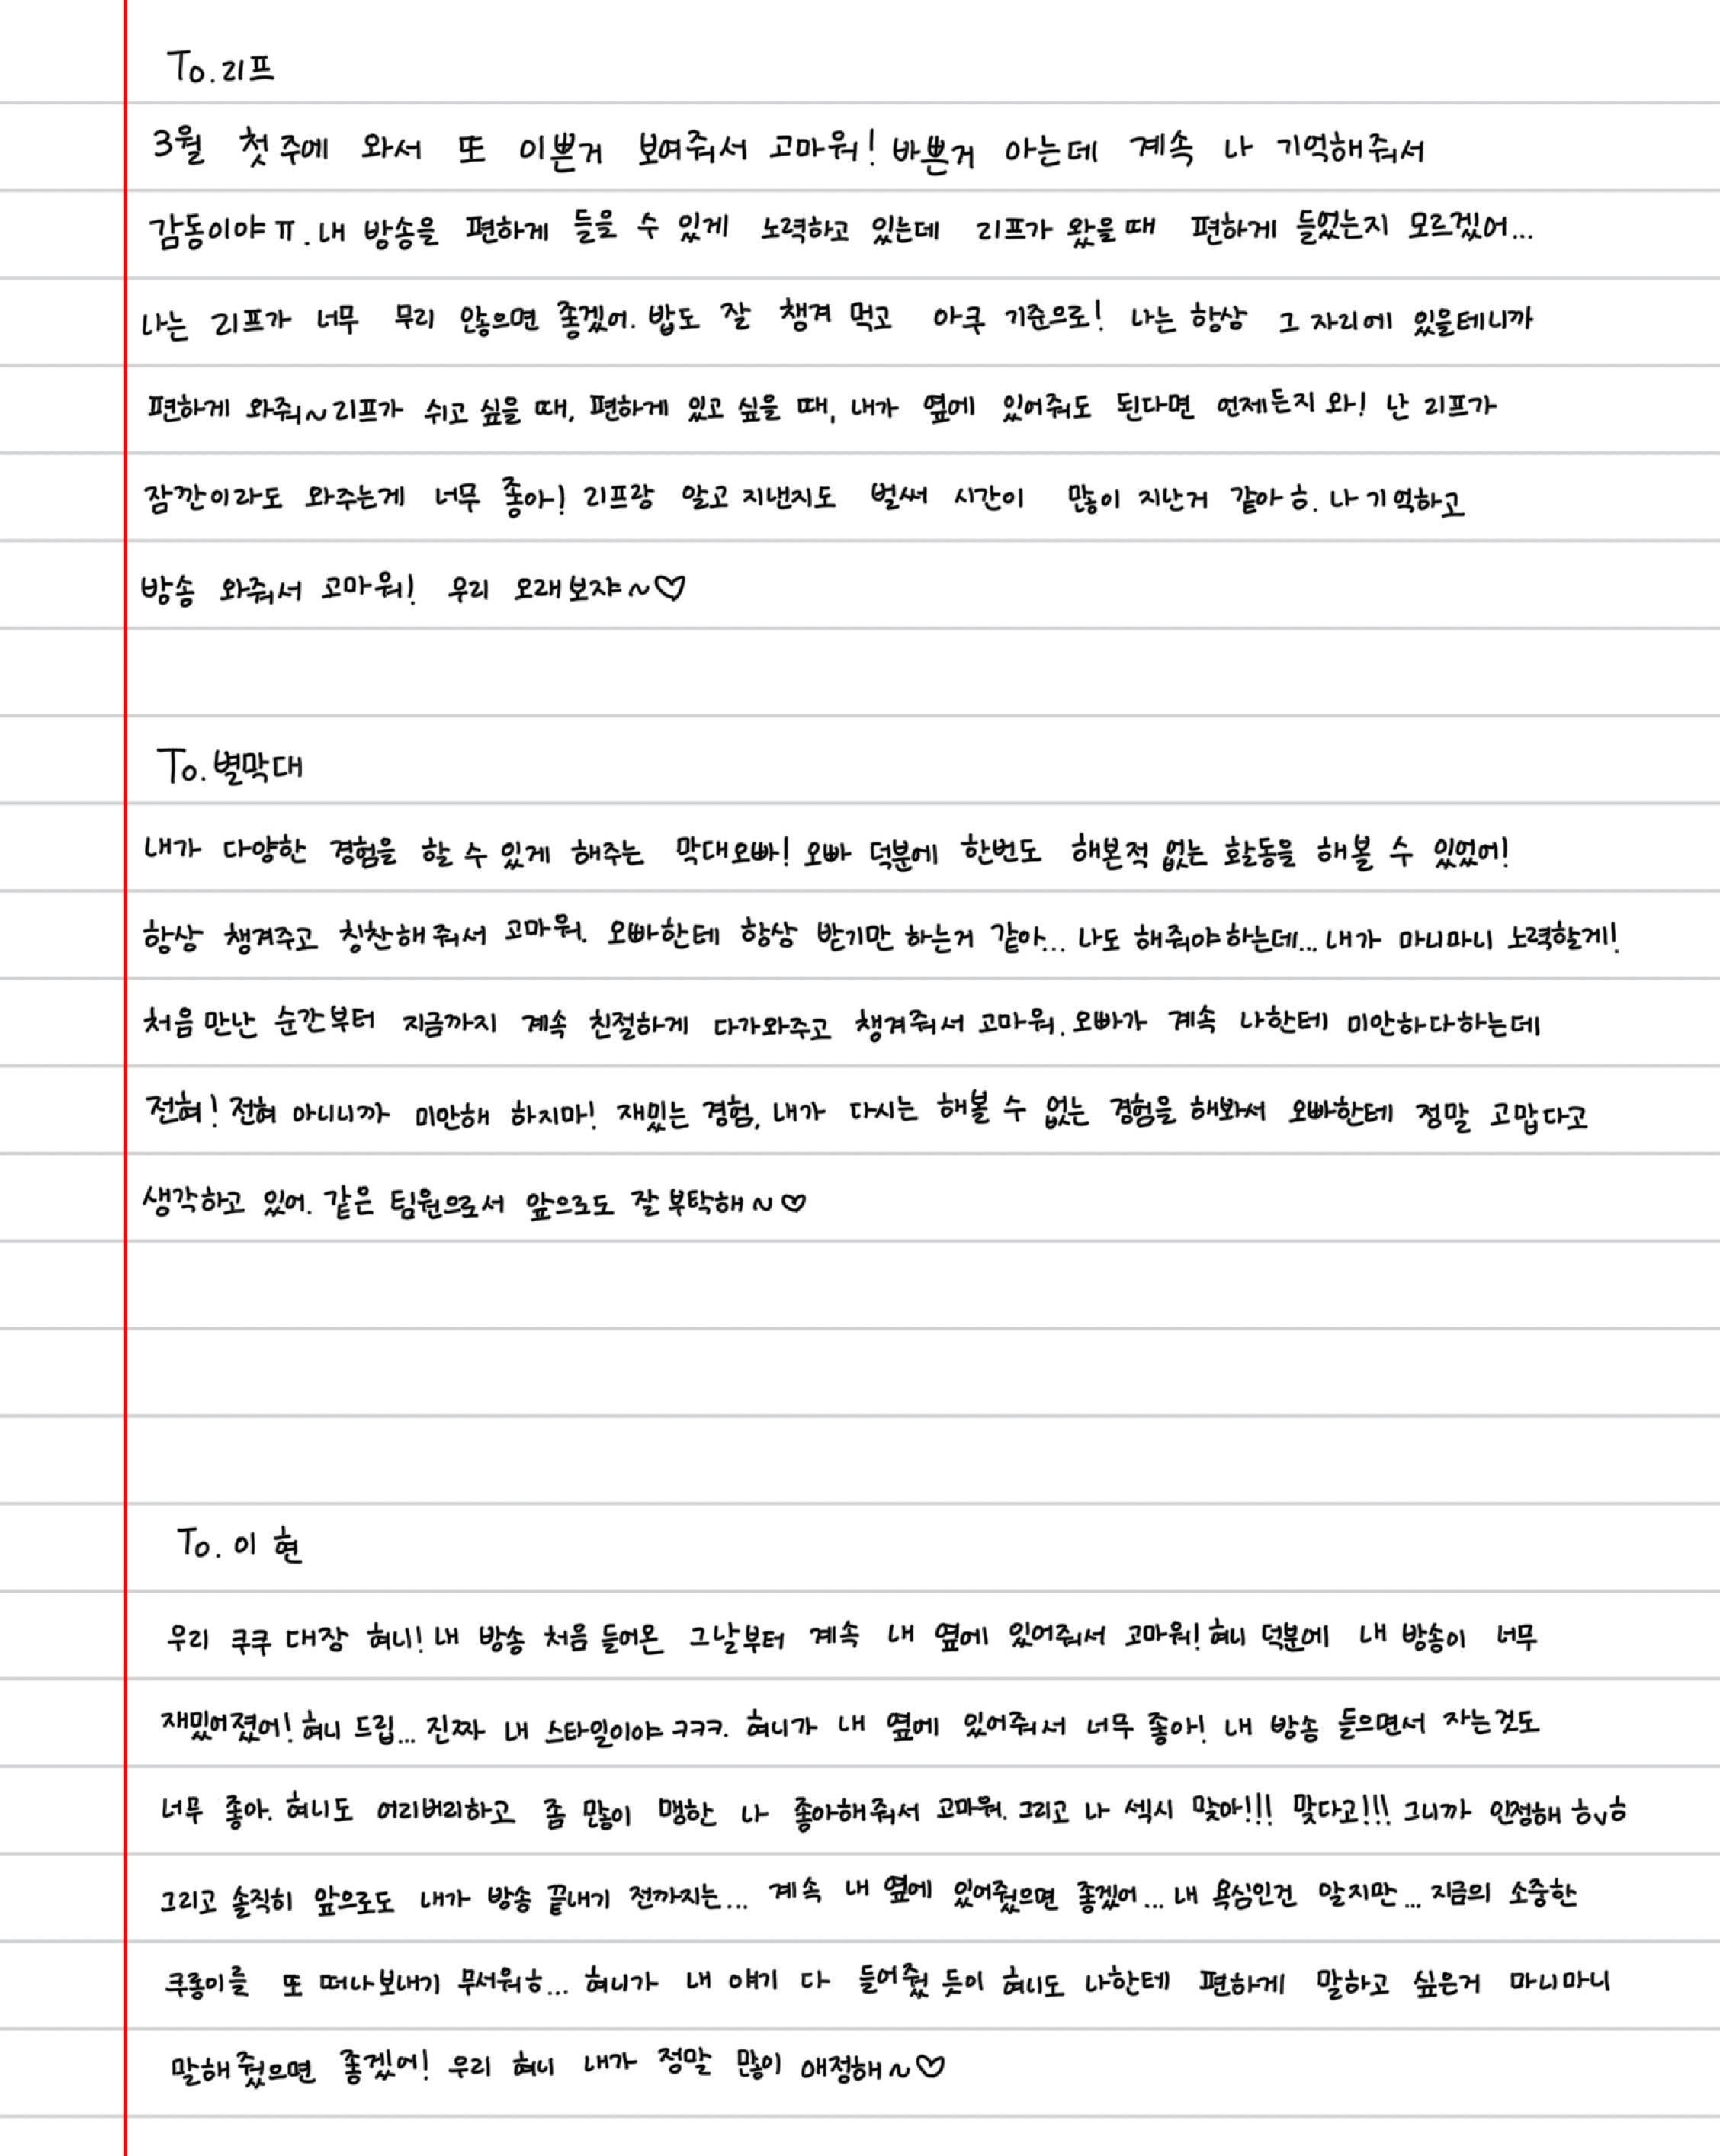 To. 리프
3월 첫 주에 와서 또 이쁜거 보여줘서 고마워! 바쁜거 아는데 계속 나 기억해줘서
감동이야ㅠ. 내 방송을 편하게 들을 수 있게 노력하고 있는데 리프가 왔을때 편하게 들었는지 모르겠어...
나는 리프가 너무 무리 않으면 좋겠어. 밥도 잘 챙겨 먹고 아쿠 기준으로! 나는 항상 그 자리에 있을테니까
편하게 와줘~ 리프가 쉬고 싶을 때, 편하게 있고 싶을 때, 내가 옆에 있어줘도 된다면 언제든지 와! 난 리프가
잠깐이라도 와주는게 너무 좋아! 리프랑 알고 지낸지도 벌써 시간이 많이 지난거 같아ㅎ. 나 기억하고
방송 와줘서 고마워! 우리 오래보쟈~♡
To. 별막대
내가 다양한 경험을 할 수 있게 해주는 막대오빠! 오빠 덕분에 한번도 해본적 없는 활동을 해볼 수 있었어!
항상 챙겨주고 칭찬해줘서 고마워. 오빠한테 항상 받기만 하는거 같아... 나도 해줘야하는데... 내가 마니마니 노력할게!
처음 만난 순간부터 지금까지 계속 친절하게 다가와주고 챙겨줘서 고마워. 오빠가 계속 나한테 미안하다하는데
전혀! 전혀 아니니까 미안해 하지마! 재밌는 경험, 내가 다시는 해볼 수 없는 경험을 해봐서 오빠한테 정말 고맙다고
생각하고 있어. 같은 팀원으로서 앞으로도 잘 부탁해~♡
To. 이현
우리 쿠쿠 대장 혀니! 내 방송 처음 들어온 그날부터 계속 내 옆에 있어줘서 고마워! 혀니 덕분에 내 방송이 너무
재밌어졌어! 혀니 드립... 진짜 내 스타일이야 ㅋㅋㅋ. 혀니가 내 옆에 있어줘서 너무 좋아! 내 방송 들으면서 자는것도
너무 좋아. 혀니도 어리버리하고 좀 많이 맹한 나 좋아해줘서 고마워. 그리고 나 섹시 맞아!!! 맞다고!!! 그니까 인정해 ㅎvㅎ
그리고 솔직히 앞으로도 내가 방송 끝내기 전까지는... 계속 내 옆에 있어줬으면 좋겠어... 내 욕심인건 알지만... 지금의 소중한
쿠롱이를 또 떠나보내기 무서워ㅎ... 혀니가 내 얘기 다 들어줬 듯이 혀니도 나한테 편하게 말하고 싶은거 마니마니
말해줬으면 좋겠어! 우리 혀니 내가 정말 많이 애정해~♡